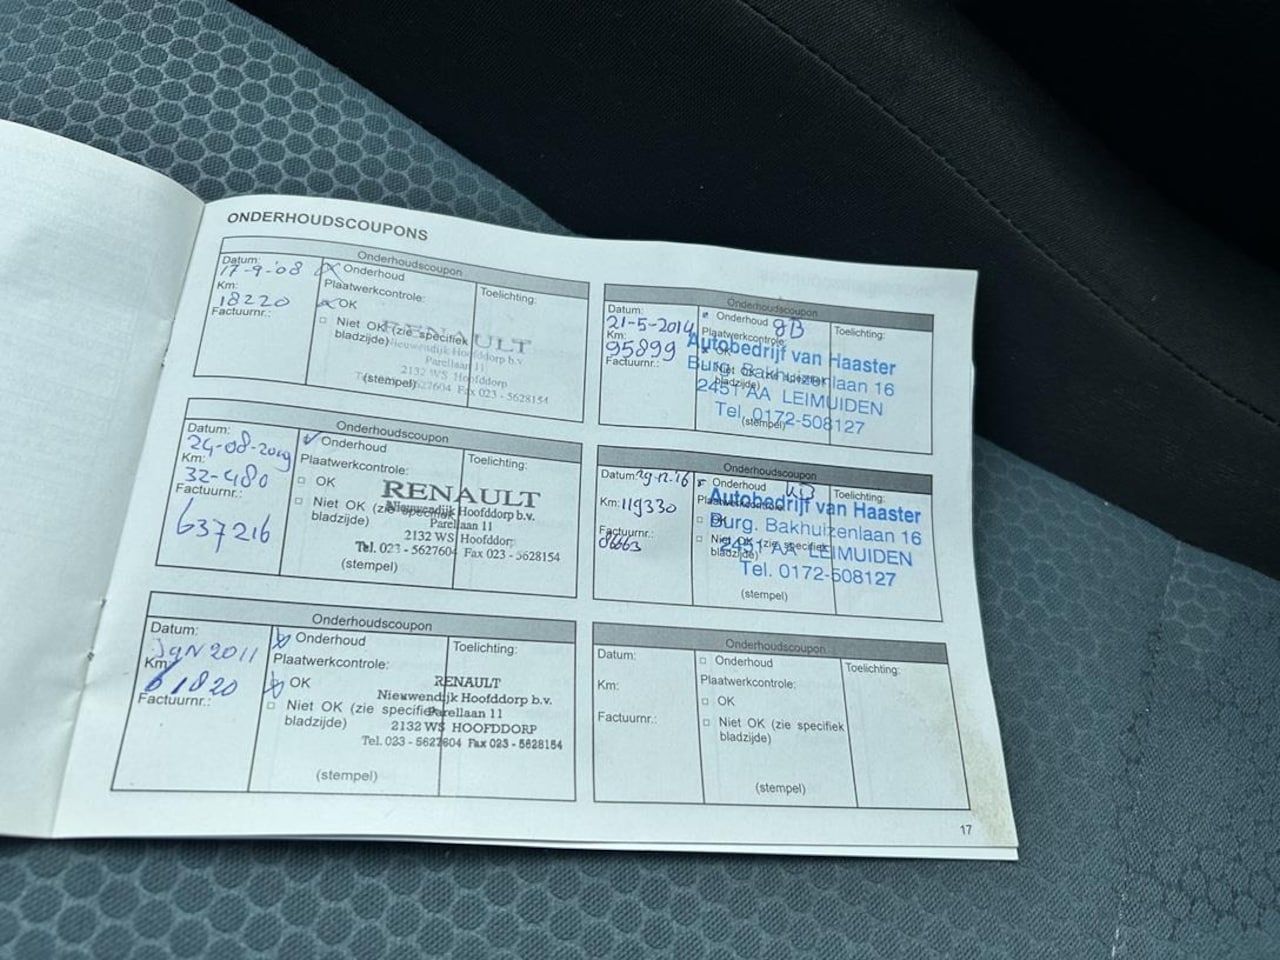 ONDERHOUDSCOUPONS
Onderhoudscoupon
Datum:
17-9-'08
Km:
18220
Factuurnr.:
Onderhoud
Plaatwerkcontrole:
OK
Niet OK (zie specifiek
bladzijde)
(stempel)
Toelichting:
RENAULT
Nieuwendijk Hoofddorp b.v.
Parellaan 11
2132 WS Hoofddorp
Fax 023 - 5628154
Onderhoudscoupon
Datum:
24-08-2009
Km:
32-480
Factuurnr.:
637216
Onderhoud
Plaatwerkcontrole:
OK
Niet OK (zie specifiek
bladzijde)
(stempel)
Toelichting:
RENAULT
Nieuwendijk Hoofddorp b.v.
Parellaan 11
2132 WS Hoofddorp
Tel. 023 - 5627604 Fax 023 - 5628154
Onderhoudscoupon
Datum:
Jan 2011
Km:
61820
Factuurnr.:
Onderhoud
Plaatwerkcontrole:
OK
Niet OK (zie specifiek
bladzijde)
(stempel)
Toelichting:
RENAULT
Nieuwendijk Hoofddorp b.v.
Parellaan 11
2132 WS HOOFDDORP
Tel. 023 - 5627604 Fax 023 - 5628154
Onderhoudscoupon
Datum:
21-5-2014
Km:
95899
Factuurnr.:
Onderhoud
Plaatwerkcontrole:
OK
(stempel)
Toelichting:
Autobedrijf van Haaster
Burg. Bakhuizenlaan 16
2451 AA LEIMUIDEN
Tel. 0172-508127
Onderhoudscoupon
Datum: 29-12-'16
Km: 119330
Factuurnr.:
Onderhoud
Plaatwerkcontrole:
OK
Niet OK (zie specifiek
bladzijde)
(stempel)
Toelichting:
Autobedrijf van Haaster
Burg. Bakhuizenlaan 16
2451 AA LEIMUIDEN
Tel. 0172-508127
Onderhoudscoupon
Datum:
Km:
Factuurnr.:
Onderhoud
Plaatwerkcontrole:
OK
Niet OK (zie specifiek
bladzijde)
(stempel)
Toelichting:
17